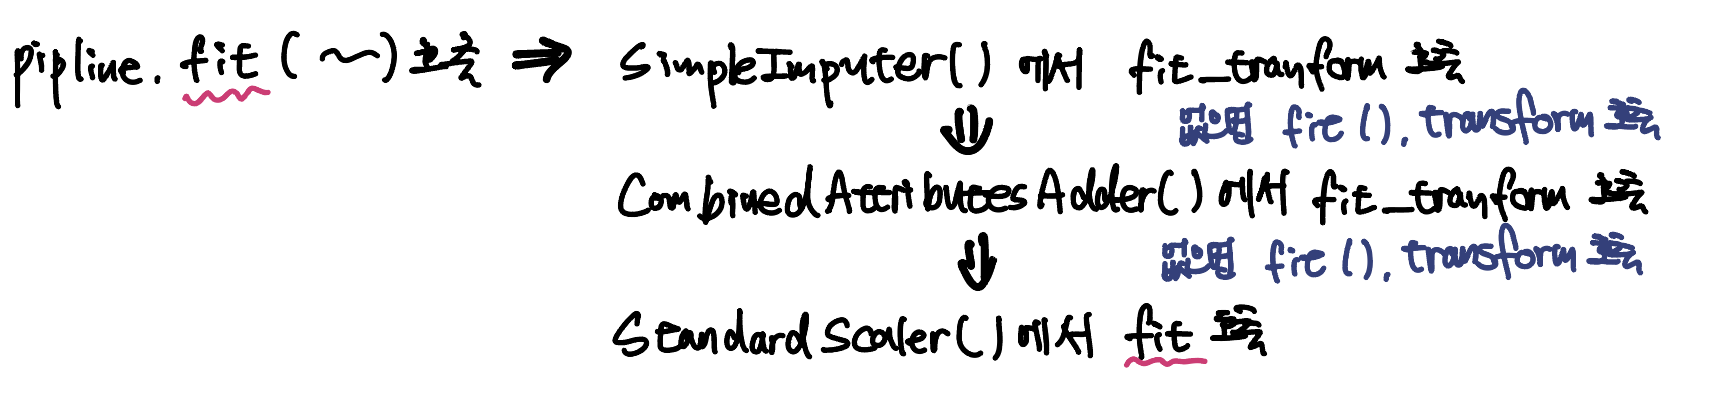 pipline. fit ( ~ ) 호출 ⇒ SimpleImputer() 에서 fit_tranform 호출
없으면 fit(), transform 호출
⇓
CombinedAttributesAdder() 에서 fit_tranform 호출
없으면 fit(), transform 호출
⇓
StandardScaler() 에서 fit 호출